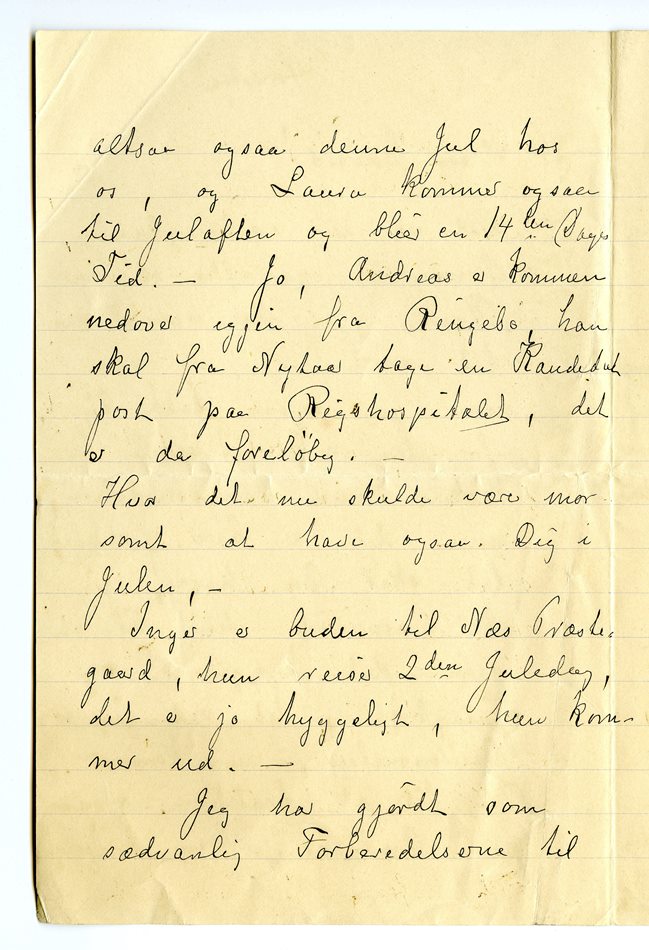 altsaa ogsaa denne Jul hos
os, og Laura kommer ogsaa
til Julaften og bliér en 14 ten Dages
Tid. — Jo, Andreas er kommen
nedover igjen fra Ringebo, han
skal fra Nytaar tage en Kandidat
post paa Rigshospitalet, det
er da foreløbig. —
Hvor det nu skulde være mor-
somt at have ogsaa Dig i
Julen, —
Inger er buden til Næs Præste-
gaard, hun reiser 2den Juledag,
det er jo hyggeligt, hun kom-
mer ud. —
Jeg har gjördt som
sædvanlig Forberedelserne til